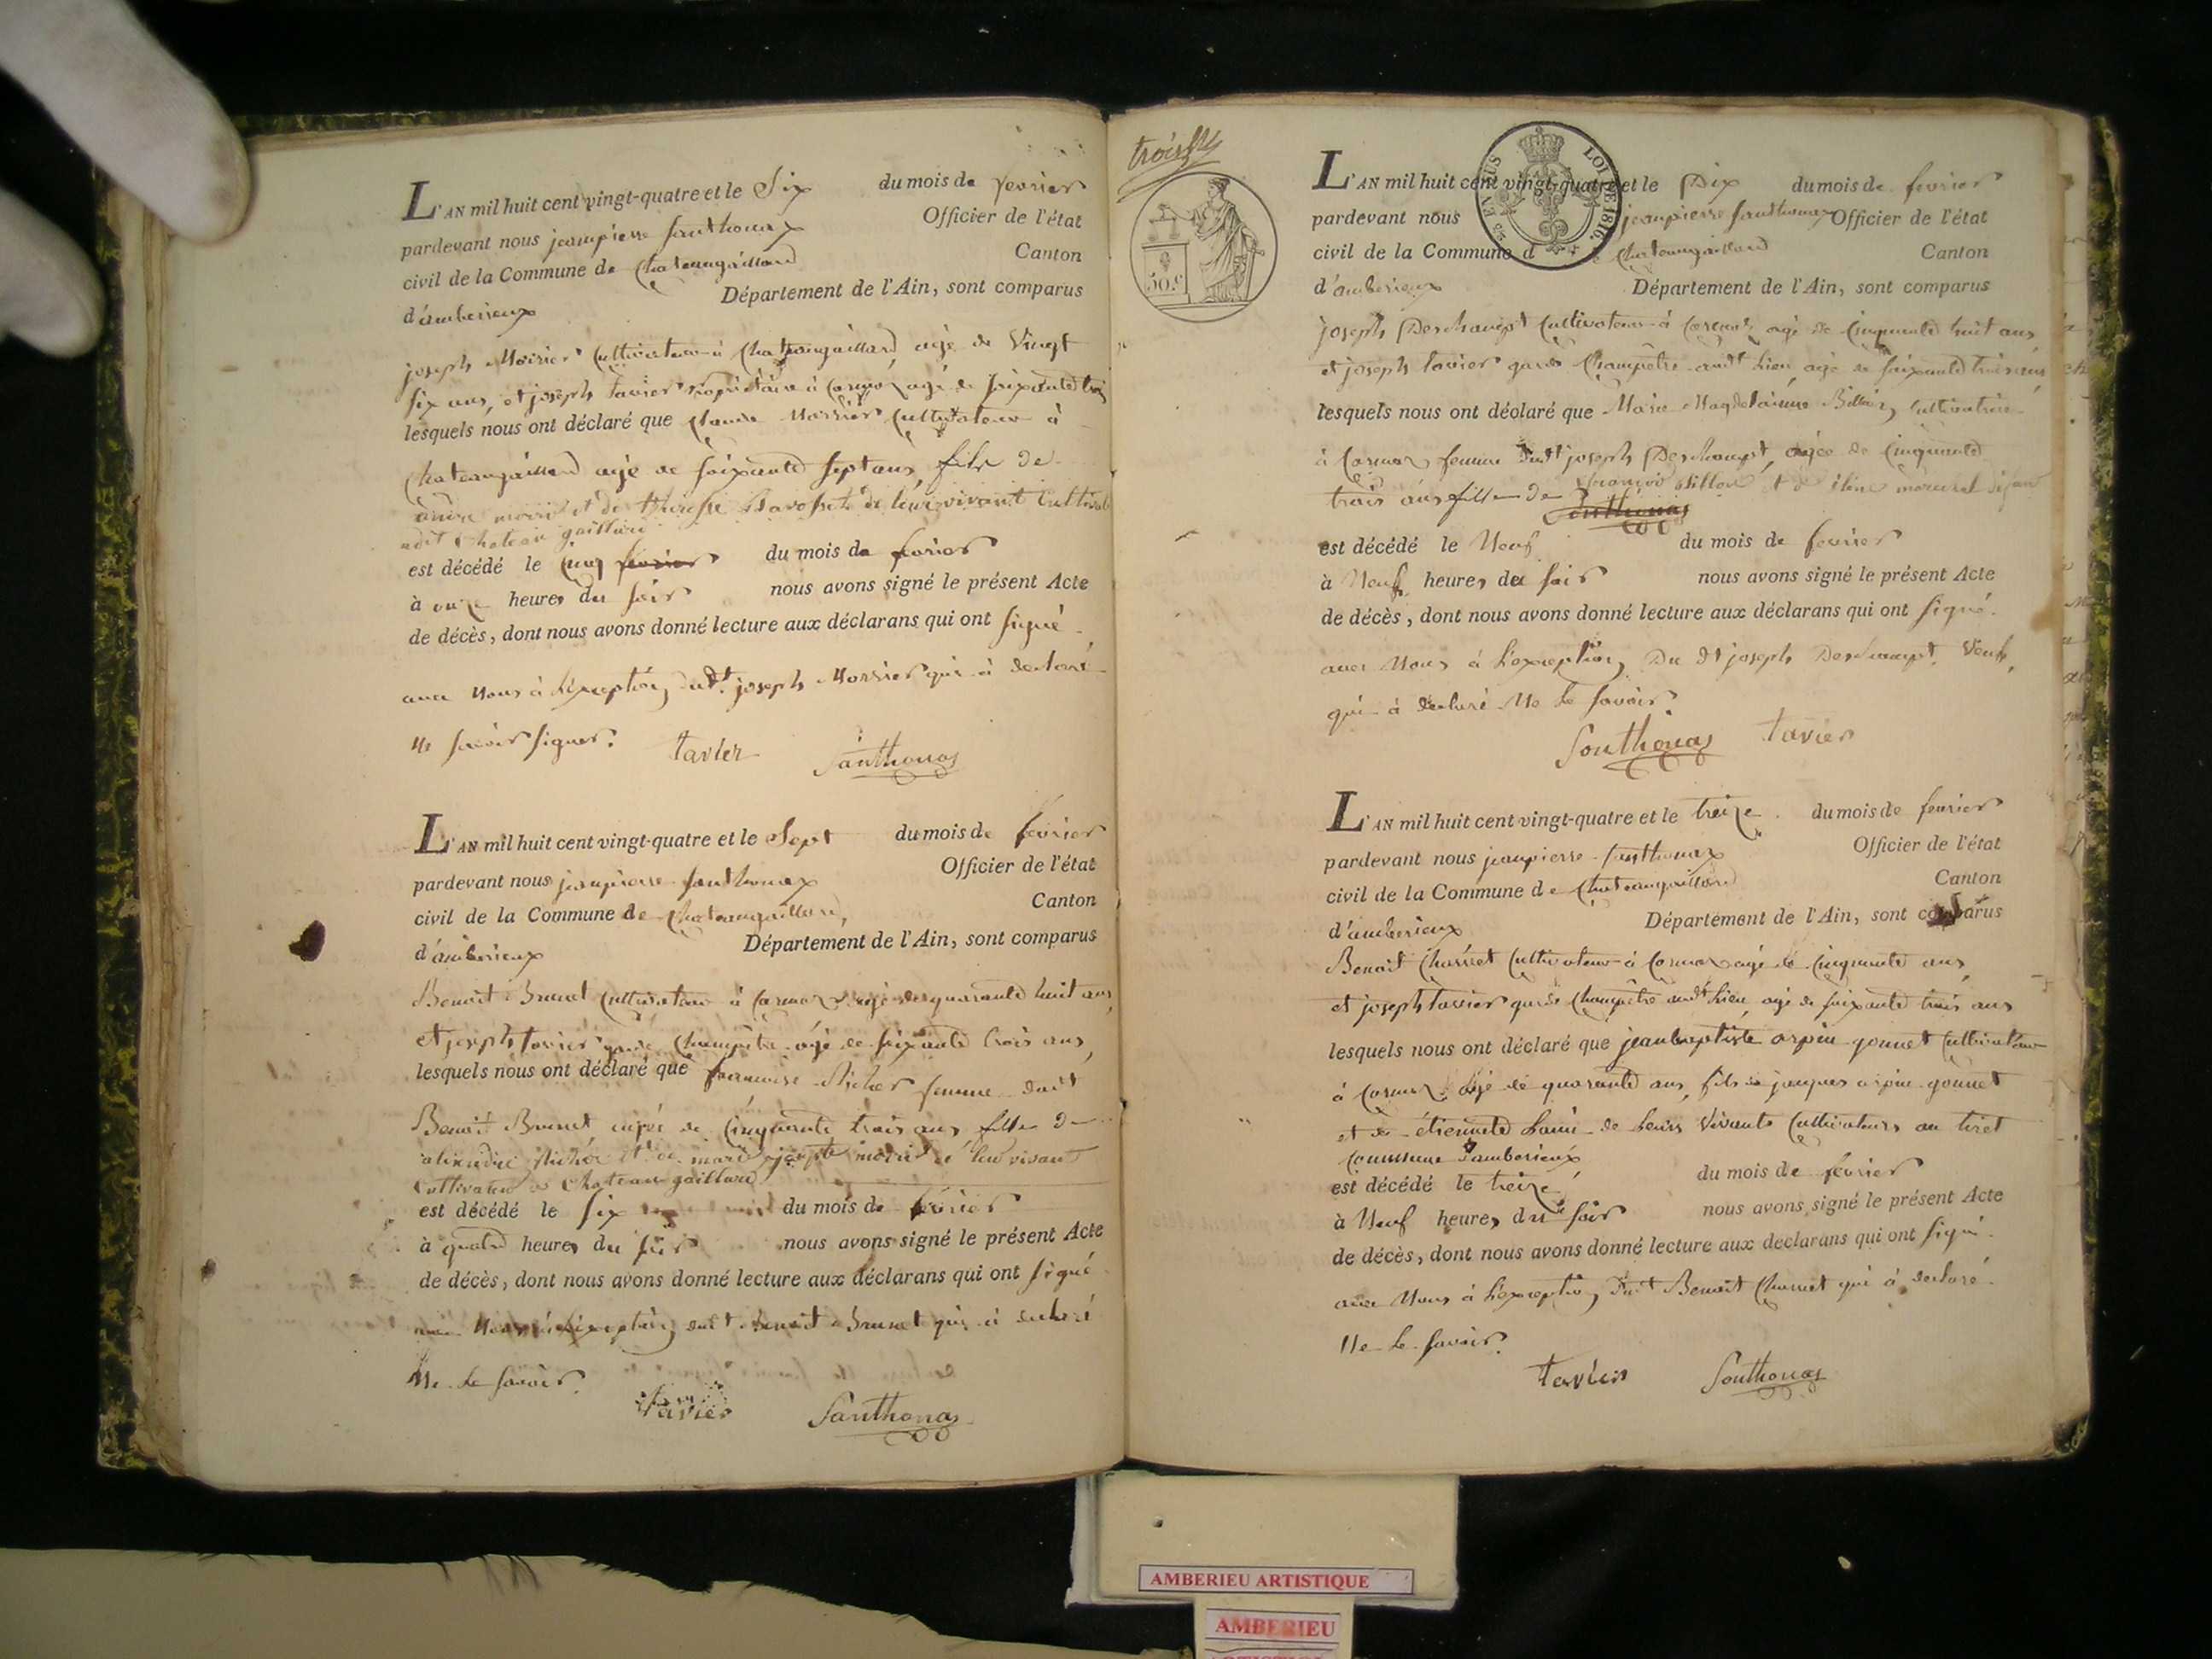 L'AN mil huit cent vingt-quatre et le Six du mois de fevrier
pardevant nous jeanpierre Santhonax Officier de l'état
civil de la Commune de Chateaugaillard Canton
d'amberieux Département de l'Ain, sont comparus
joseph Morrier Cultivateur à Chateaugaillard, agé de Vingt
six ans, et joseph tavier propriétaire à Cormoz agé de soixante trois
lesquels nous ont déclaré que Claude Morrier Cultivateur à
Chateaugaillard agé de soixante Sept ans, fils de
de leur vivant Cultivat
udit Chateau gaillard
est décédé le Cinq fevrier du mois de fevrier
à onze heures du soir nous avons signé le présent Acte
de décès, dont nous avons donné lecture aux déclarans qui ont signé
avec Nous à l'exception udt. joseph Morrier qui à declaré
Ne savoir signer.
tavier Santhonax
L'AN mil huit cent vingt-quatre et le Sept du mois de fevrier
pardevant nous jeanpierre Santhonax Officier de l'état
civil de la Commune de Chateaugaillard, Canton
d'amberieux Département de l'Ain, sont comparus
Benoit Brunet Cultivateur à Cormoz agé de quarante huit ans,
et joseph tavier garde Champêtre agé de soixante trois ans,
lesquels nous ont déclaré que francoise Richer femme dudt
Benoit Brunet agée de Cinquante trois ans fille de
de leur vivant
Cultivateur a Chateau gaillard
est décédé le six du mois de fevrier
à quatre heures du soir nous avons signé le présent Acte
de décès, dont nous avons donné lecture aux déclarans qui ont signé
avec Nous à l'exception dudt Benoit Brunet qui à declaré
Ne le savoir.
tavier Santhonax
trois
50.C
LOI DE 1816.
L'AN mil huit cent vingt-quatre et le Dix du mois de fevrier
pardevant nous jeanpierre Santhonax Officier de l'état
civil de la Commune d Chateaugaillard Canton
d'amberieux Département de l'Ain, sont comparus
joseph Deschampt Cultivateur à Cormoz agé de Cinquante huit ans
et joseph tavier garde Champêtre audt lieu, agé de soixante trois ans
lesquels nous ont déclaré que Marie Magdelainne Cultivatrice
à Cormoz femme dudt joseph Deschampt, agée de Cinquante
trois ans fille de françois
Santhonax
est décédé le Neuf du mois de fevrier
à Neuf heures du soir nous avons signé le présent Acte
de décès, dont nous avons donné lecture aux déclarans qui ont signé
avec Nous à l'exception Du dt joseph Deschampt Veuf,
qui à declaré Ne le savoir.
Santhonax tavier
L'AN mil huit cent vingt-quatre et le treize du mois de fevrier
pardevant nous jeanpierre Santhonax Officier de l'état
civil de la Commune de Chateaugaillard Canton
d'amberieux Département de l'Ain, sont comparus
Benoit Charvet Cultivateur à Cormoz agé de Cinquante ans
et joseph tavier garde Champêtre audt lieu, agé de soixante trois ans
lesquels nous ont déclaré que jeanbaptiste arpin gonnet Cultivateur
à Cormoz agé de quarante ans, fils de jacques arpin gonnet
et de étiennette de leurs Vivants Cultivateurs au tiret
Commune d'amberieux
est décédé le treize du mois de fevrier
à Neuf heures du soir nous avons signé le présent Acte
de décès, dont nous avons donné lecture aux declarans qui ont signé
avec Nous à l'exception dudt Benoit Charvet qui à declaré
Ne le savoir.
tavier Santhonax
AMBERIEU ARTISTIQUE
AMBERIEU